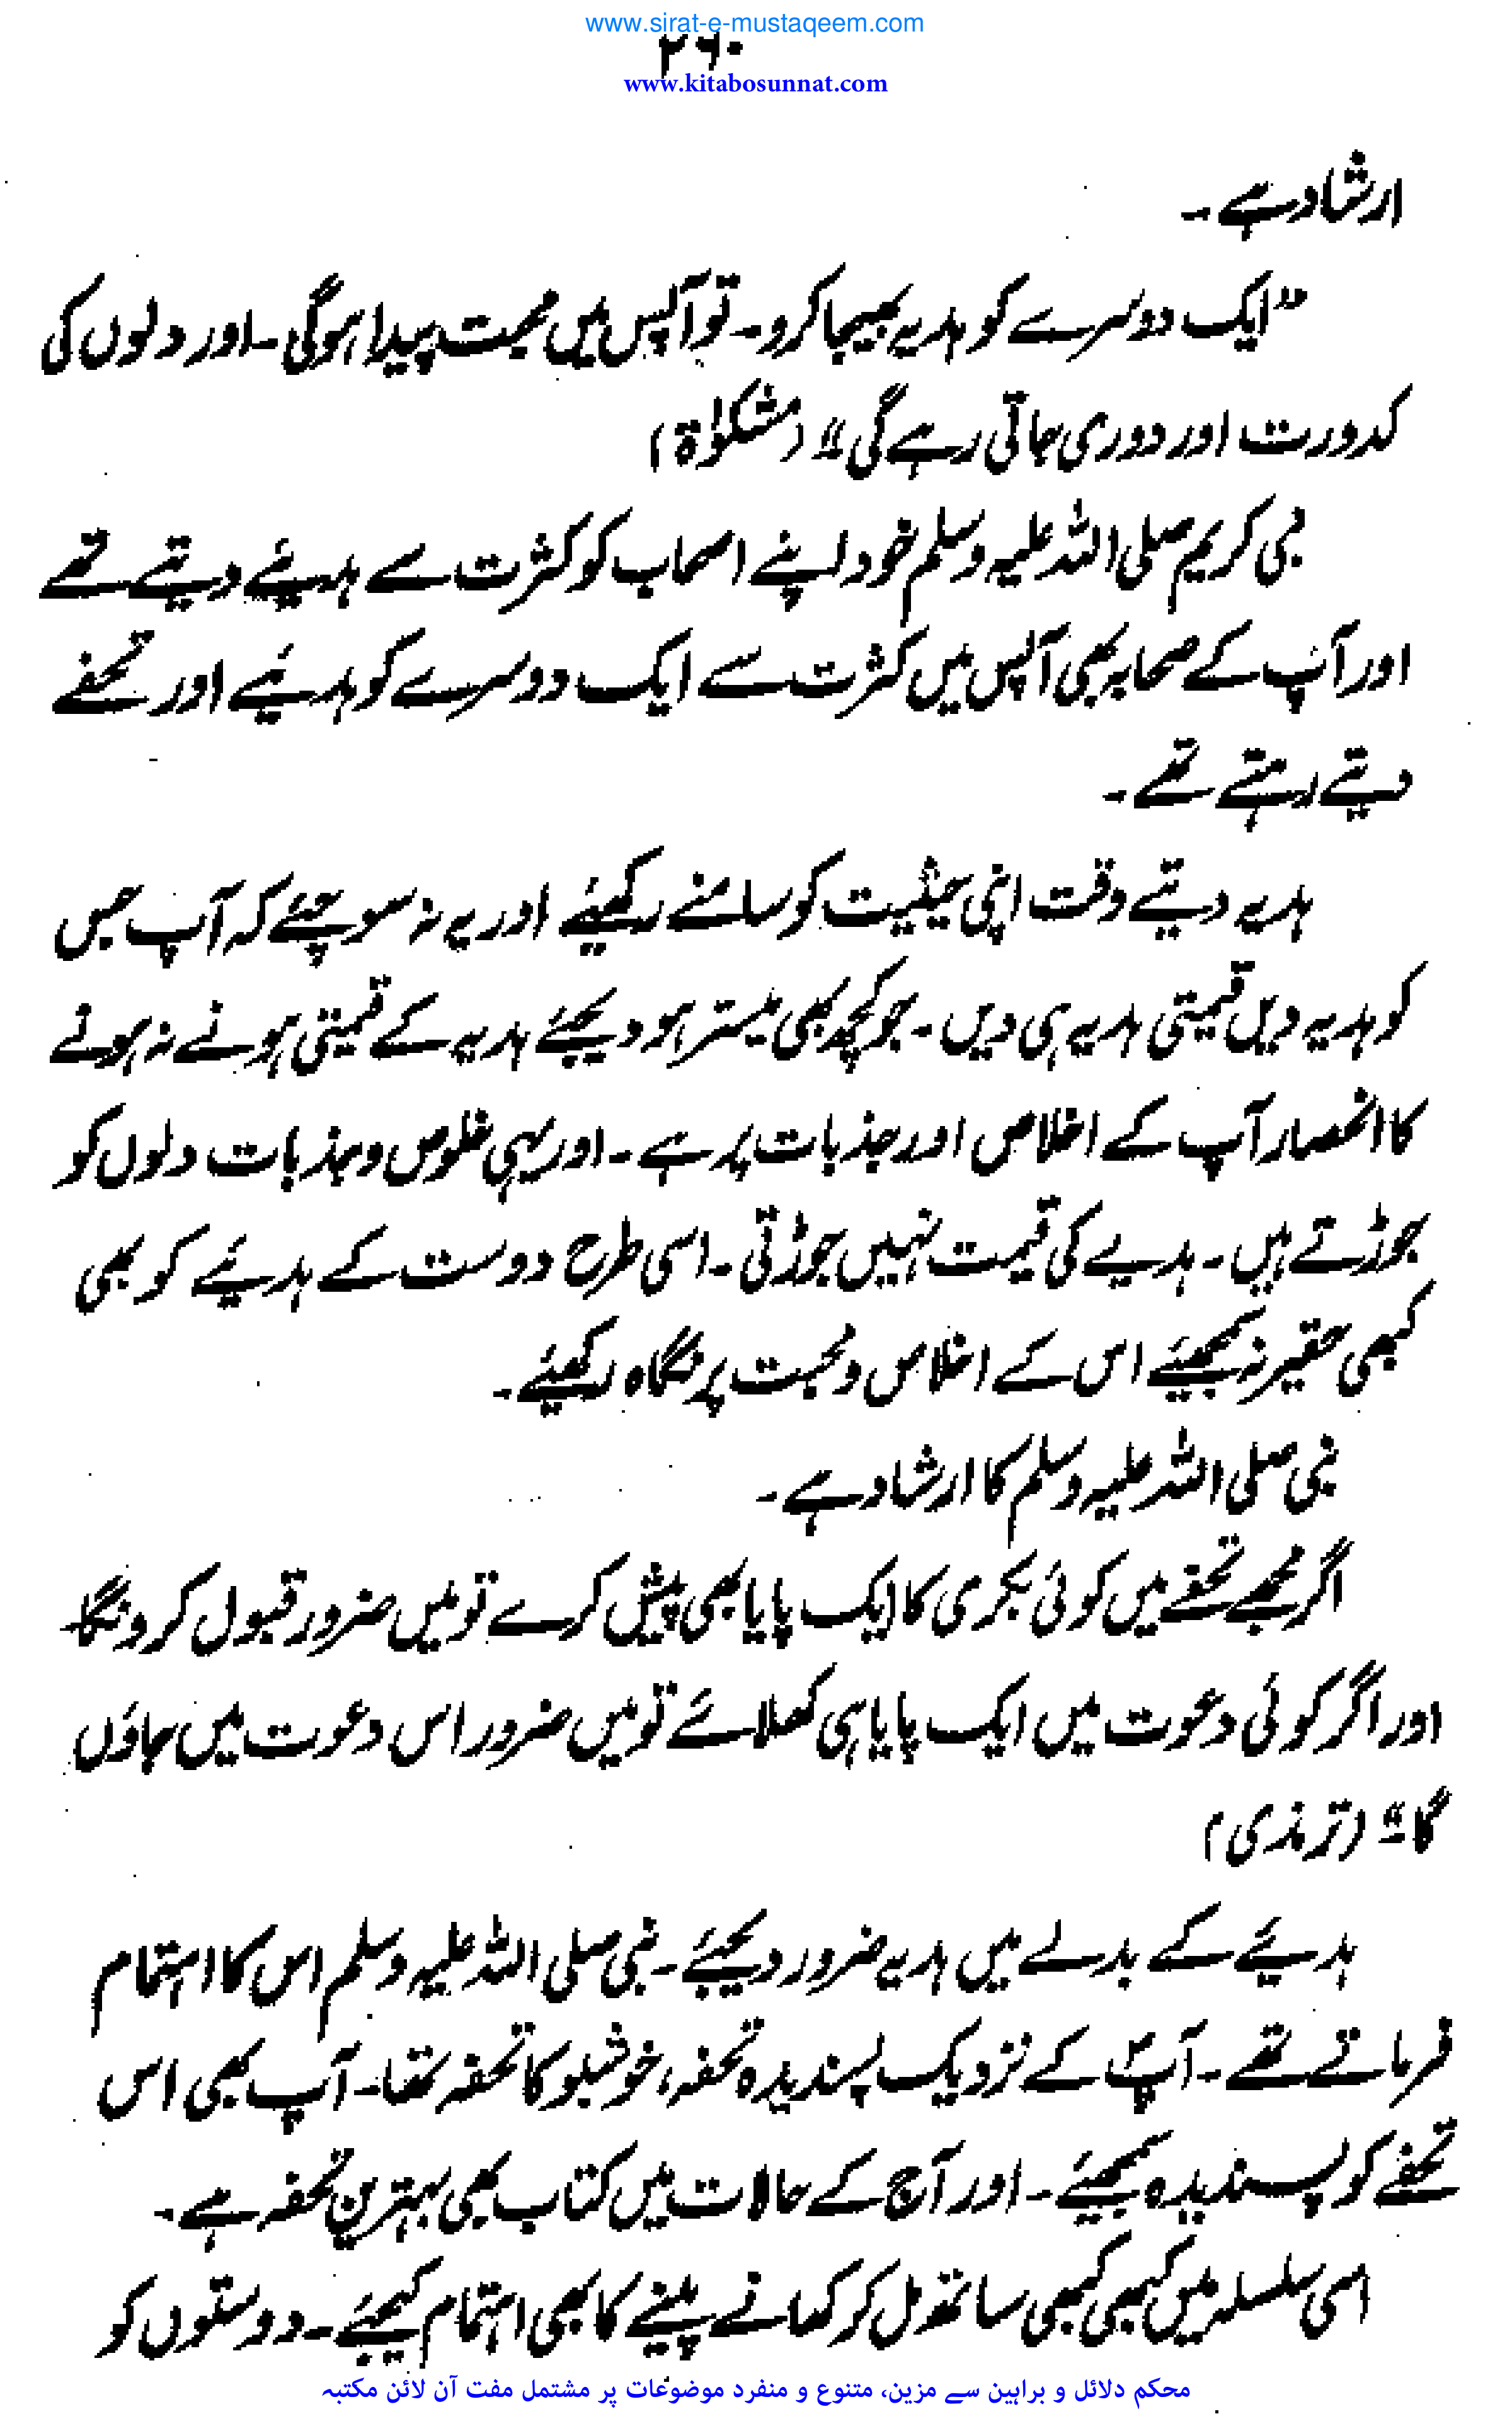 www.sirat-e-mustaqeem.com
۲۶۰
www.kitabosunnat.com
ارشاد ہے ۔
”ایک دوسرے کو ہدیہ بھیجا کرو۔ تو آپس میں محبت پیدا ہوگی ۔ اور دلوں کی
کدورت اور دوری جاتی رہے گی۔“ (مشکوٰۃ)
نبی کریم صلی اللہ علیہ وسلم خود اپنے اصحاب کو کثرت سے ہدیئے دیتے تھے
اور آپ کے صحابہ بھی آپس میں کثرت سے ایک دوسرے کو ہدیئے اور تحفے
دیتے رہتے تھے ۔
ہدیہ دیتے وقت اپنی حیثیت کو سامنے رکھیئے اور یہ نہ سوچئے کہ آپ جس
کو ہدیہ دیں قیمتی ہدیہ ہی دیں ۔ جو کچھ بھی میسّر ہو دیجئے ہدیہ کے قیمتی ہونے نہ ہونے
کا انحصار آپ کے اخلاص اور جذبات پر ہے ۔ اور یہی خلوص و جذبات دلوں کو
جوڑتے ہیں ۔ ہدیے کی قیمت نہیں جوڑتی ۔ اسی طرح دوست کے ہدیئے کو بھی
کبھی حقیر نہ سمجھیئے اس کے اخلاص و محبت پر نگاہ رکھیئے ۔
نبی صلی اللہ علیہ وسلم کا ارشاد ہے ۔
اگر مجھے تحفے میں کوئی بکری کا ایک پایا بھی پیش کرے تو میں ضرور قبول کرونگا۔
اور اگر کوئی دعوت میں ایک پایا ہی کھلائے تو میں ضرور اس دعوت میں جاؤں
گا۔“ (ترمذی)
ہدیئے کے بدلے میں ہدیہ ضرور دیجئے ۔ نبی صلی اللہ علیہ وسلم اس کا اہتمام
فرماتے تھے ۔ آپؐ کے نزدیک پسندیدہ تحفہ، خوشبو کا تحفہ تھا۔ آپ بھی اس
تحفے کو پسندیدہ سمجھیئے ۔ اور آج کے حالات میں کتاب بھی بہترین تحفہ ہے ۔
اسی سلسلہ میں کبھی کبھی ساتھ مل کر کھانے پینے کا بھی اہتمام کیجئے ۔ دوستوں کو
محکم دلائل و براہین سے مزین، متنوع و منفرد موضوعات پر مشتمل مفت آن لائن مکتبہ